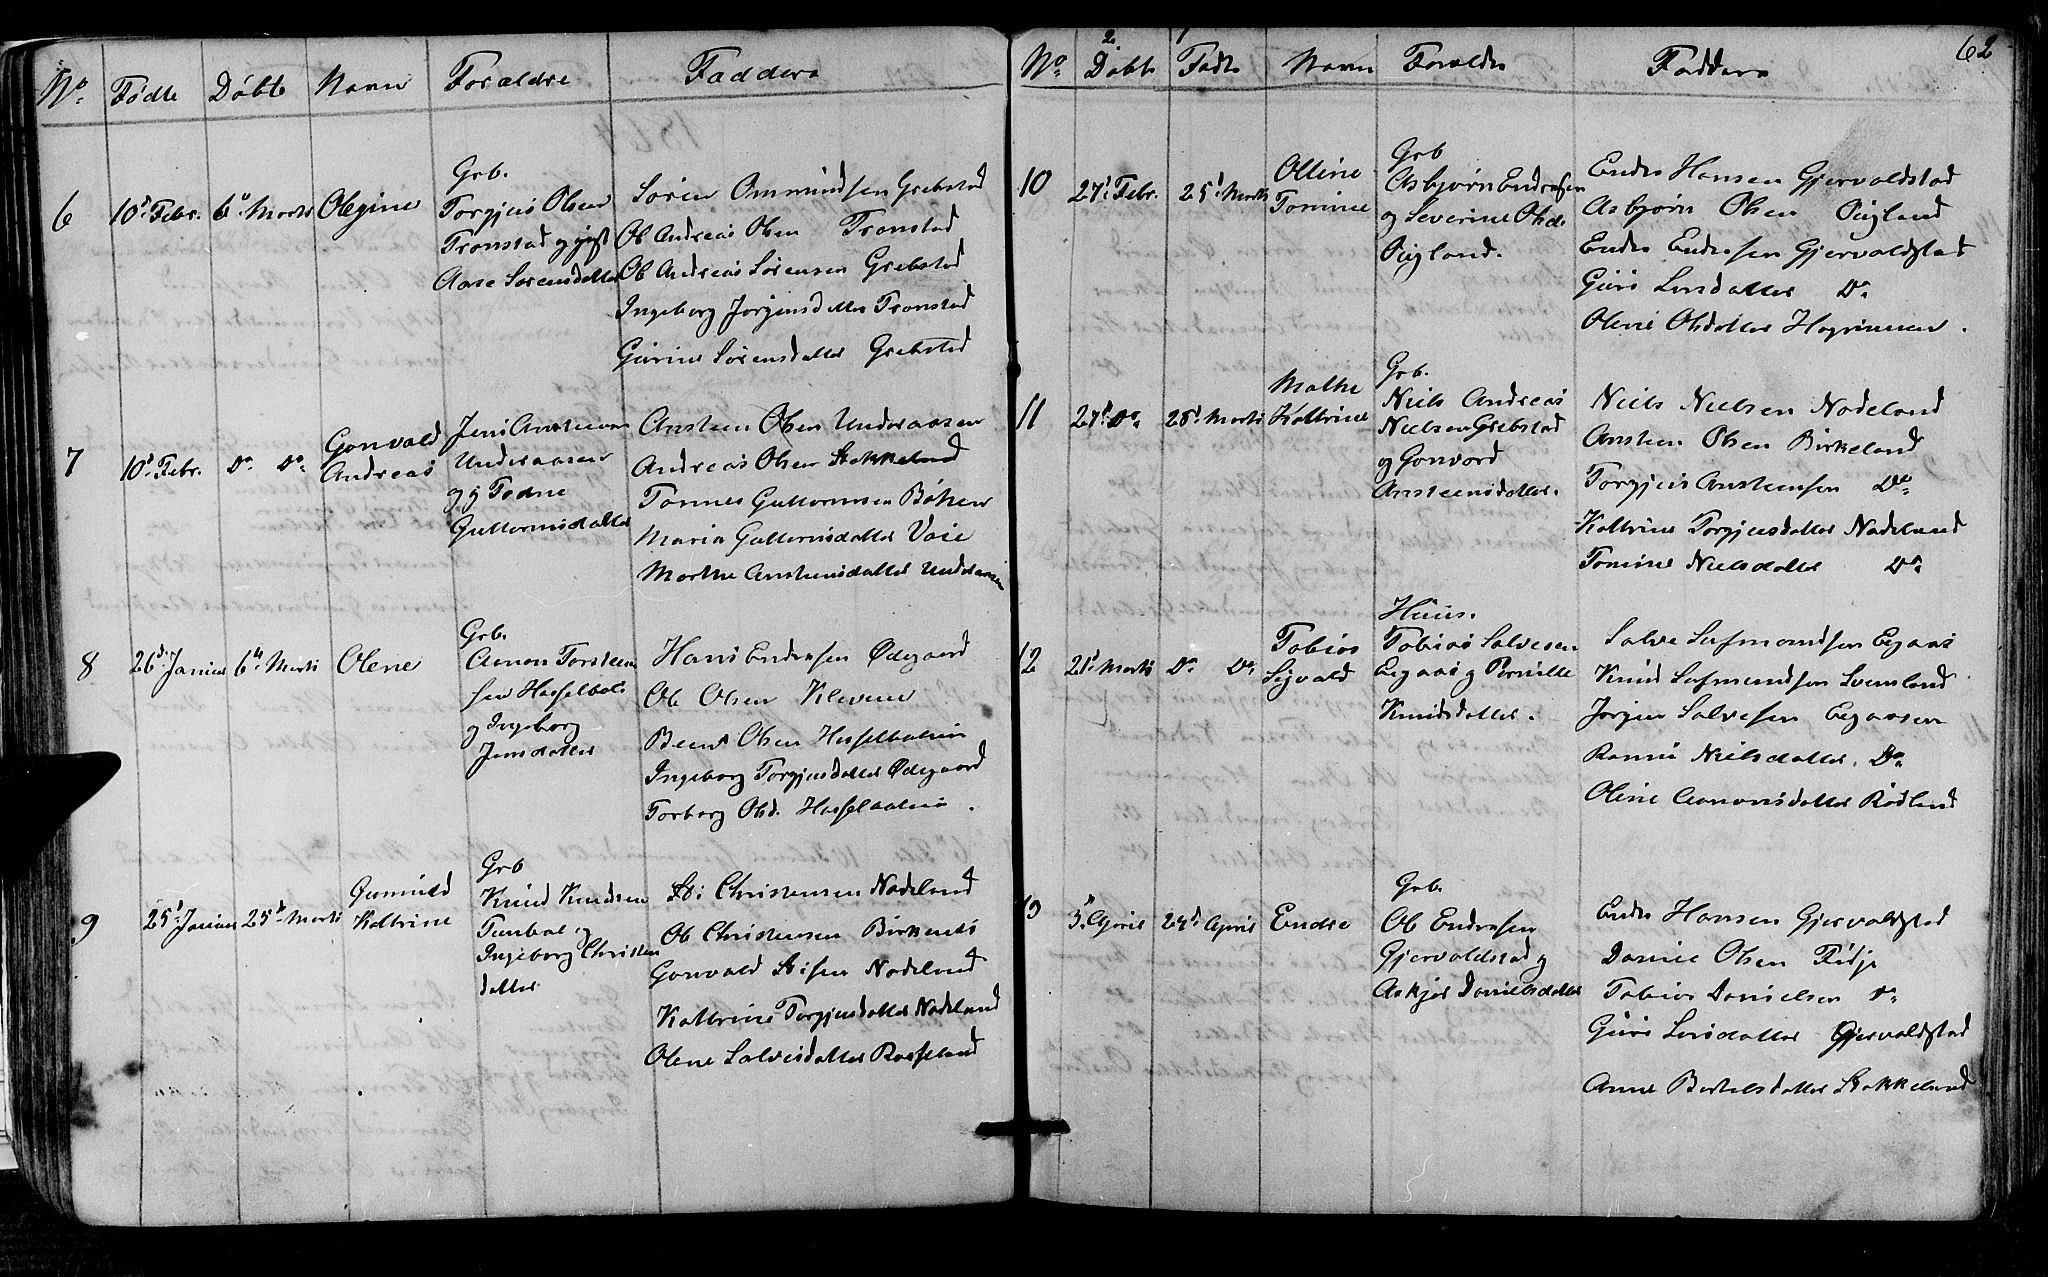 No. Fødte Døbte Navn Forældre Faddere
6 10d Febr. 6te Marts Olegine
Grb.
Torgjus Olsen
Tronstad og gift
Aase Sørensdatter
Søren Ommundsen Grebstad
Ole Andreas Olsen Tronstad
Ole Andreas Sørensen Grebstad
Ingeborg Jørgensdatter Tronstad
Gurine Sørensdatter Grebstad
7 10d Febr. Do. Do. Gonvald
Andreas
Jens Ansteensen
Underaasen
og g Todne
Guttormsdatter
Ansteen Olsen Underaasen
Andreas Olsen Stokkeland
Tønnes Guttormsen
Maria Guttormsdatter Voie
Marthe Ansteensdatter Underaasen
8 26d Januar 6te Marts Olene
Grb.
Aanon Torsteen
sen
og Ingeborg
Jensdatter
Hans Endresen Ødegaard
Ole Olsen Kleven
Beent Olsen
Ingeborg Torgjusdatter Ødegaard
Torborg Olsd.
9 25d Januar 25d Marts Gunuld
Kathrine
Grb
Knud Knudsen
og
Ingeborg Christen
datter
Christensen Nodeland
Ole Christensen Birkenes
Gonvald Nodeland
Kathrine Torgjusdatter Nodeland
Olene Salvesdatter Rosseland
62
2 1
No. Døbte Fødte Navn Forældre Faddere
10 27d Febr. 25d Marts Olline
Tomine
Grb
Asbjørn Endresen
og Severine Olsdr
Rugland.
Endre Hansen Gjervoldstad
Asbjørn Olsen Rugland
Endre Endresen Gjervoldstad
Guro Larsdatter Do.
Olene Olsdatter
11 27d Do. 28d Marts Malhe
Kathrine
Grb.
Niels Andreas
Nielsen Grebstad
og Gonvord
Ansteensdatter.
Niels Nielsen Nodeland
Ansteen Olsen Birkeland
Torgjus Ansteensen Do.
Kathrine Torgjusdatter Nodeland
Tomine Nielsdatter Do.
12 21d Marts Do. Do. Tobias
Sigvald
Huus.
Tobias Salvesen
Eegaas og Pernille
Knudsdatter.
Salve Eegaas
Knud
Jørgen Salvesen Eegaasen
Nielsdatter. Do.
Olene Aanonsdatter Rødland
13 3d April 24d April Endre
Grb.
Ole Endresen
Gjervoldstad og
Askjer Danielsdatter
Endre Hansen Gjervoldstad
Daniel Olsen Fidje
Tobias Danielsen Do.
Guro Larsdatter Gjervoldstad
Anne Bertelsdatter Stokkeland